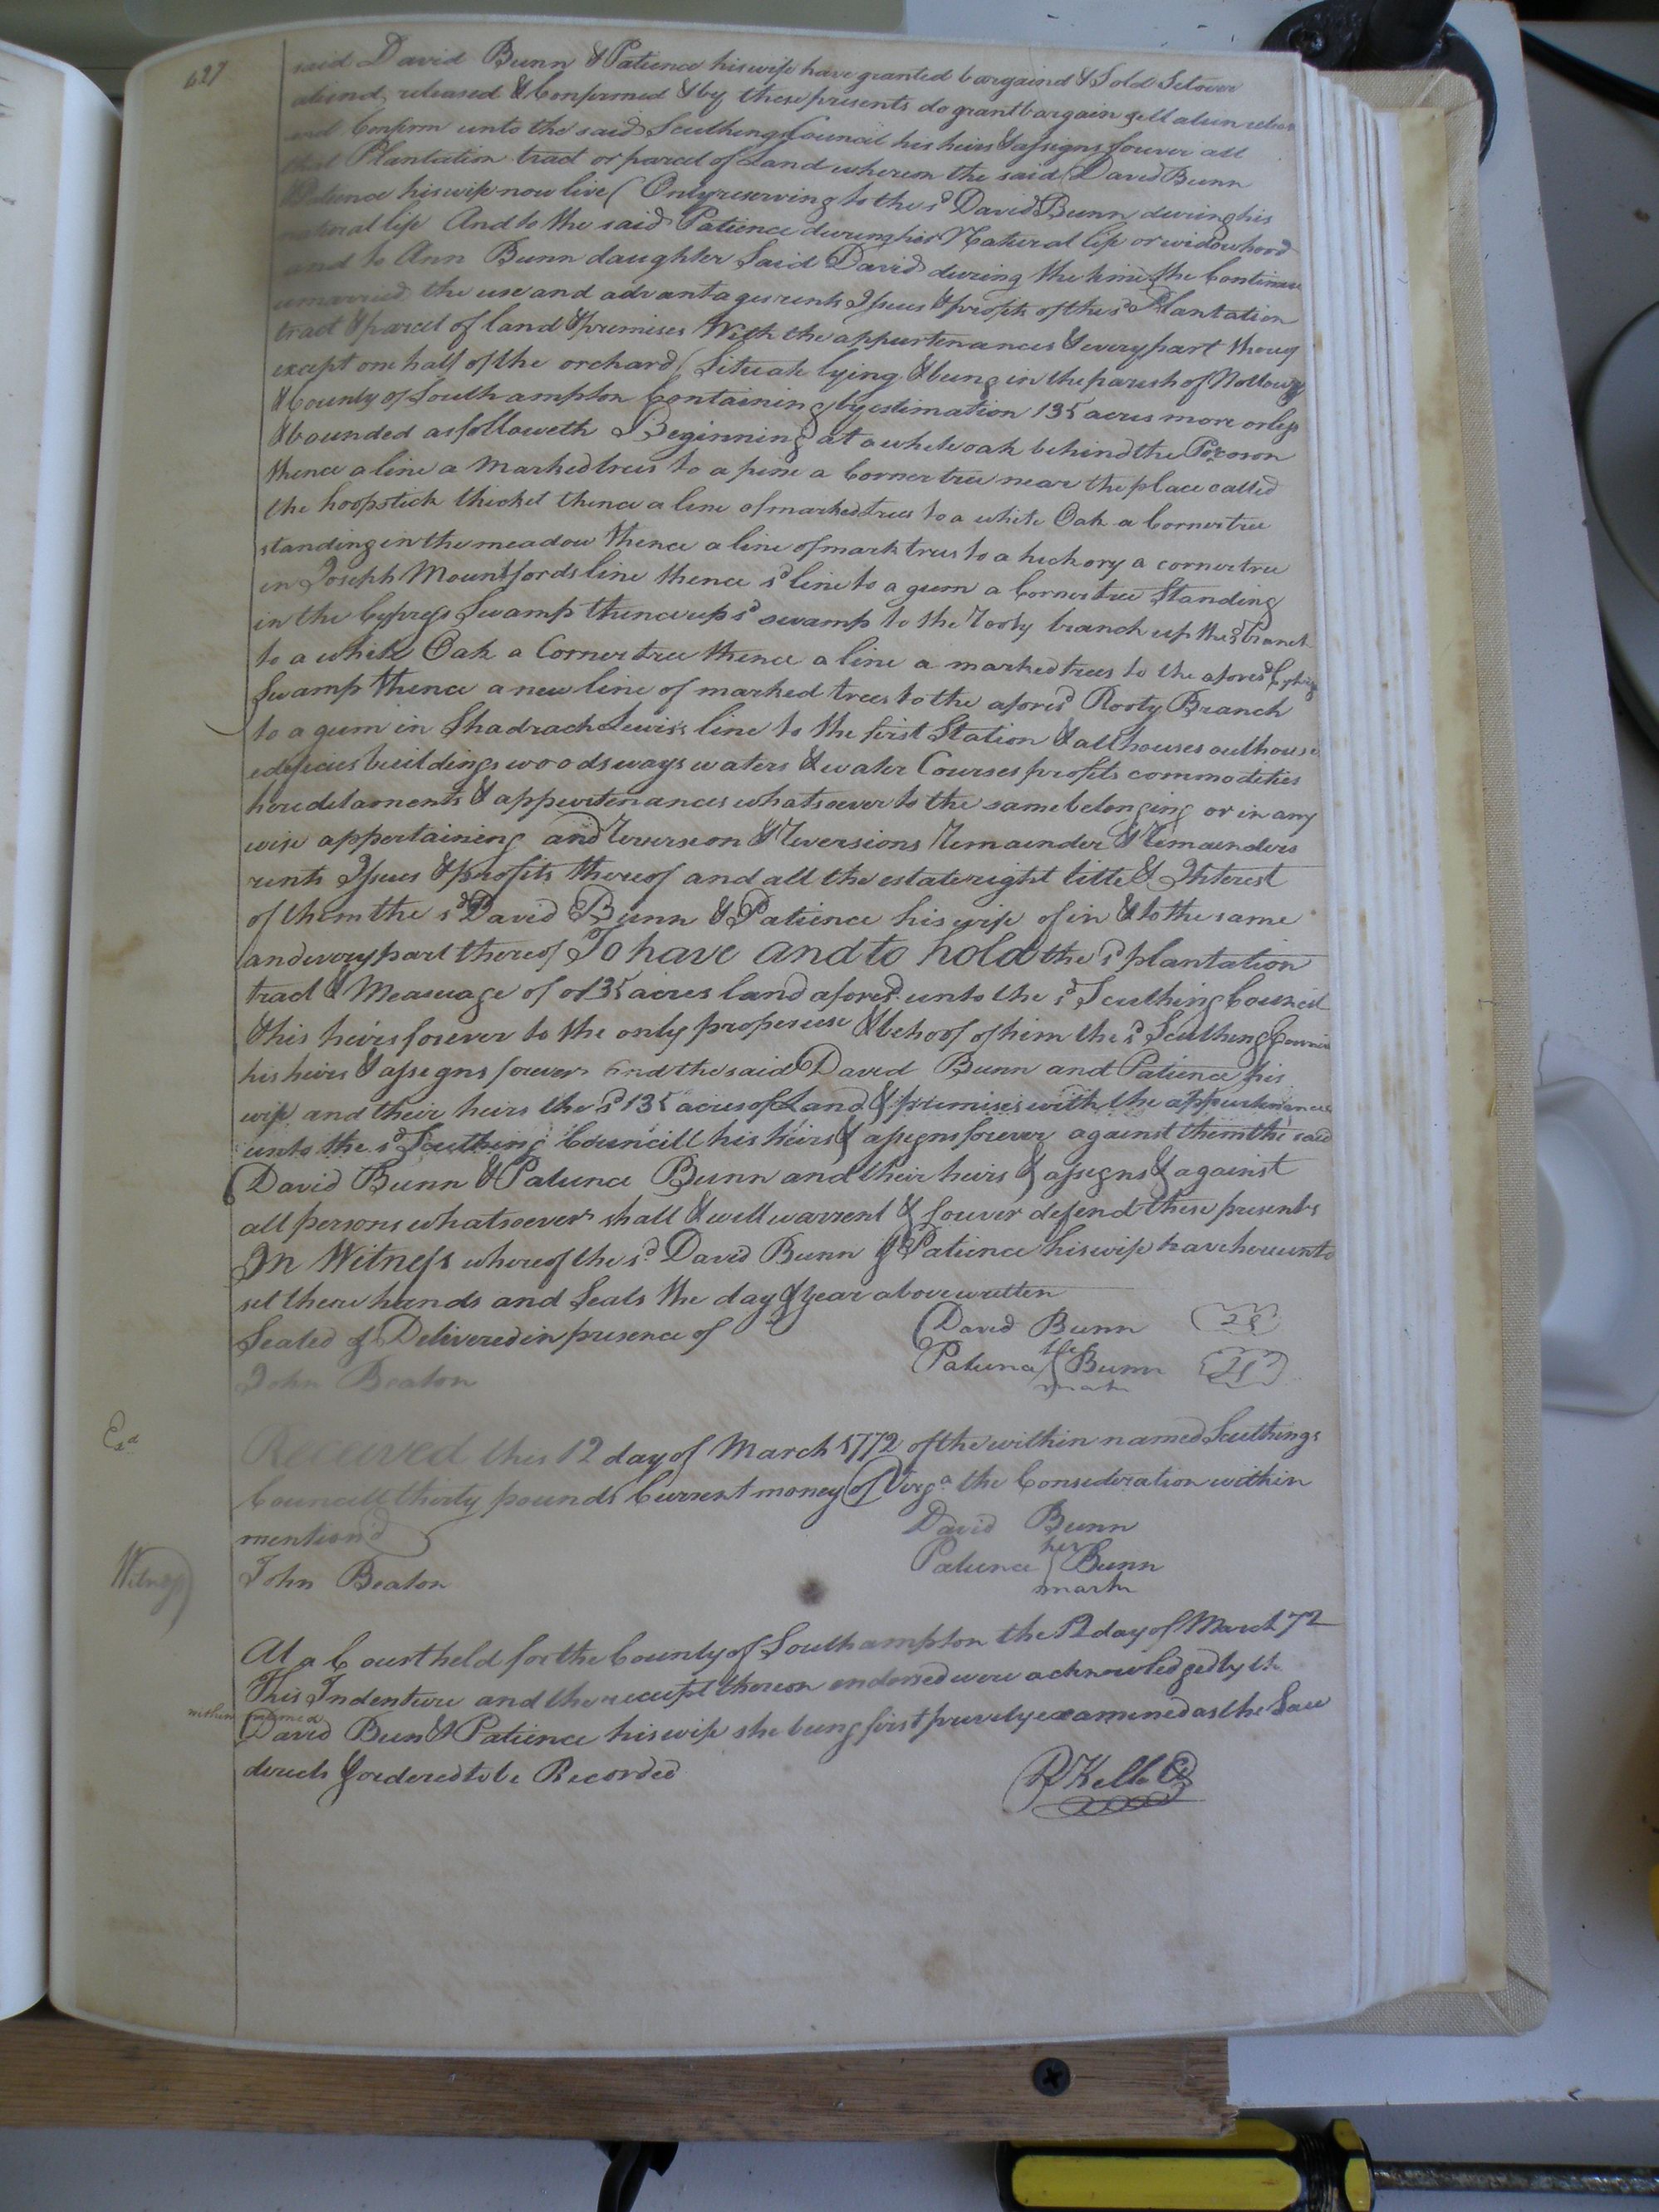 627
said David Bunn & Patience his wife have granted bargaind & Sold Setover
aliend, released & Confirmed & by these presents do grant bargain sell alien
and Confirm unto the said Scuthings Council his heirs & assigns forever all
that Plantation tract or parcel of Land whereon the said David Bunn
& Patience his wife now live (Only reserving to the sd David Bunn during his
natural life And to the said Patience during her Natural life or widowhood
and to Ann Bunn daughter Said David during the time the Continues
unmarried the use and advantages rents Issues & profits of the sd Plantation
tract & parcel of land & premises With the appurtenances & every part thereof
except one half of the orchard (Situate lying & being in the parish of Nottoway
& County of Southampton Containing by estimation 135 acres more or less
& bounded as followeth Beginning at a white oak behind the Pocoson
thence a line a Marked trees to a pine a Corner tree near the place called
the hoopstick thicket thence a line of marked trees to a white Oak a Corner tree
standing in the meadow thence a line of mark trees to a hickory a corner tree
in Joseph Mountfords line thence sd line to a gum a Corner tree Standing
in the Cypress Swamp thence up sd swamp to the Rooty branch up the sd branch
to a white Oak a Corner tree thence a line a marked trees to the aforesd Cypress
Swamp thence a new line of marked trees to the aforesd Rooty Branch
to a gum in Shadrach Lewis's line to the first Station & all houses outhouses
edificies buildings woods ways waters & water Courses profits commodities
heredetaments & appurtenances whatsoever to the same belonging or in any
wise appertaining and Reverseon & Reversions Remainder & Remainders
rents Issues & profits thereof and all the estate right title & Interest
of them the sd David Bunn & Patience his wife of in & to the same
and every part thereof To have and to hold the sd plantation
tract & Measuage of 135 acres land aforesd unto the sd Scuthing Council
& his heirs forever to the only proper use & behoof of him the sd Scuthing Council
his heirs & assegns forever And the said David Bunn and Patience his
wife and their heirs the sd 135 acres of Land & premises with the appurtenances
unto the sd Scuthing Councill his heirs & assegns forever against them the said
David Bunn & Patience Bunn and their heirs & assegns & against
all persons whatsoever shall & will warrent & forever defend these presents
In Witness whereof the sd David Bunn & Patience his wife have hereunto
set there hands and Seals the day & year above written
Sealed & Delivered in presence of David Bunn
John Beaton Patience Bunn
mark
Exd
Received this 12 day of March 1772 of the within named Scuthings
Councill thirty pounds Current money of Virga the Consideration within
mentiond David Bunn
her
Witness John Beaton Patience Bunn
mark
At a Court held for the County of Southampton the 12 day of March 72
This Indenture and the receipt thereon endorsed were acknowledged by the
within named
David Bun & Patience his wife she being first privily examined as the Law
derects & ordered to be Recorded
R Kello